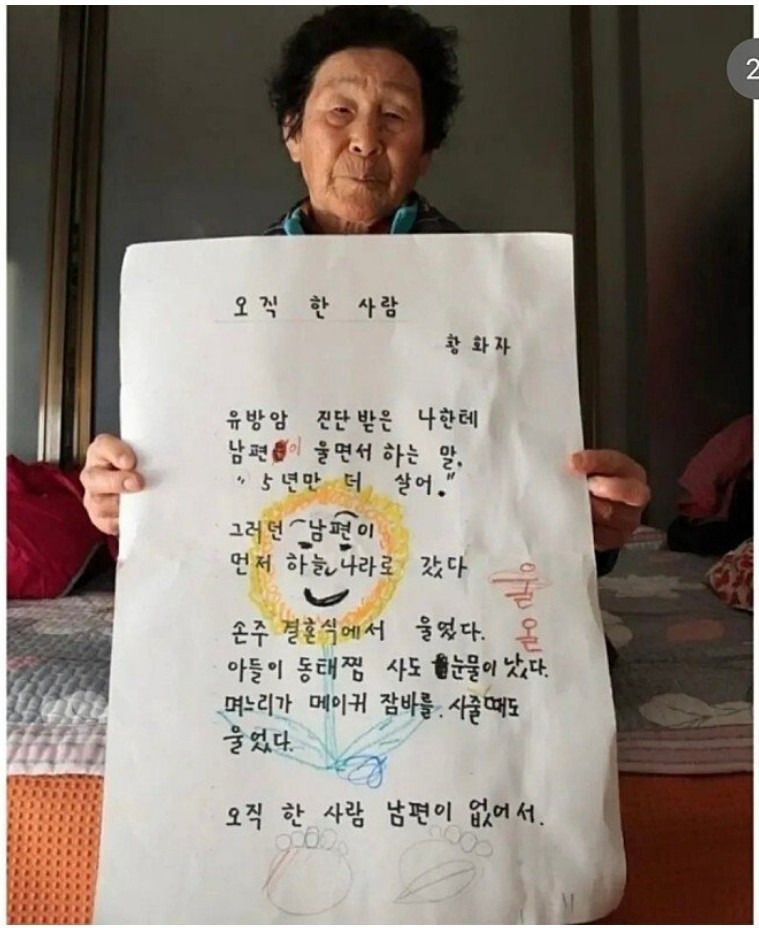 오직 한 사람
황화자
유방암 진단 받은 나한테
남편이 울면서 하는 말,
"5년만 더 살어."
그러던 남편이
먼저 하늘나라로 갔다
손주 결혼식에서 울었다.
아들이 동태찜 사도 눈물이 났다.
며느리가 메이커 잠바를 사줄때도
울었다.
오직 한 사람 남편이 없어서.
울
울
2